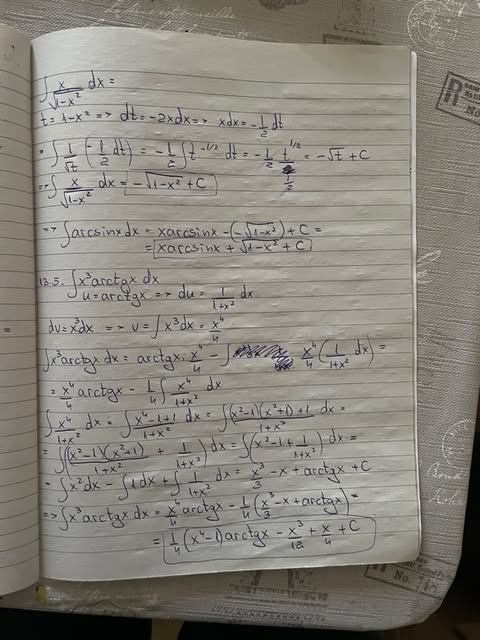 ∫ x/√(1-x²) dx =
t = 1-x² => dt = -2xdx => xdx = -1/2 dt
= ∫ 1/√t (-1/2 dt) = -1/2 ∫ t^(-1/2) dt = -1/2 t^(1/2)/(1/2) = -√t + C
=> ∫ x/√(1-x²) dx = -√(1-x²) + C
=> ∫ arcsinx dx = xarcsinx - (-√(1-x²)) + C =
= xarcsinx + √(1-x²) + C
13.5. ∫ x³ arctgx dx
u = arctgx => du = 1/(1+x²) dx
dv = x³dx => v = ∫ x³dx = x⁴/4
∫ x³ arctgx dx = arctgx · x⁴/4 - ∫ x⁴/4 (1/(1+x²) dx) =
= x⁴/4 arctgx - 1/4 ∫ x⁴/(1+x²) dx
∫ x⁴/(1+x²) dx = ∫ (x⁴-1+1)/(1+x²) dx = ∫ ((x²-1)(x²+1)+1)/(1+x²) dx =
= ∫ ((x²-1)(x²+1)/(1+x²) + 1/(1+x²)) dx = ∫ (x²-1+1/(1+x²)) dx =
= ∫ x²dx - ∫ 1dx + ∫ 1/(1+x²) dx = x³/3 - x + arctgx + C
=> ∫ x³ arctgx dx = x⁴/4 arctgx - 1/4 (x³/3 - x + arctgx) =
= 1/4 (x⁴-1) arctgx - x³/12 + x/4 + C